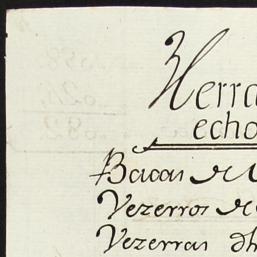 Herra
echo
Bacas de
Vezerros de
Vezerras dh